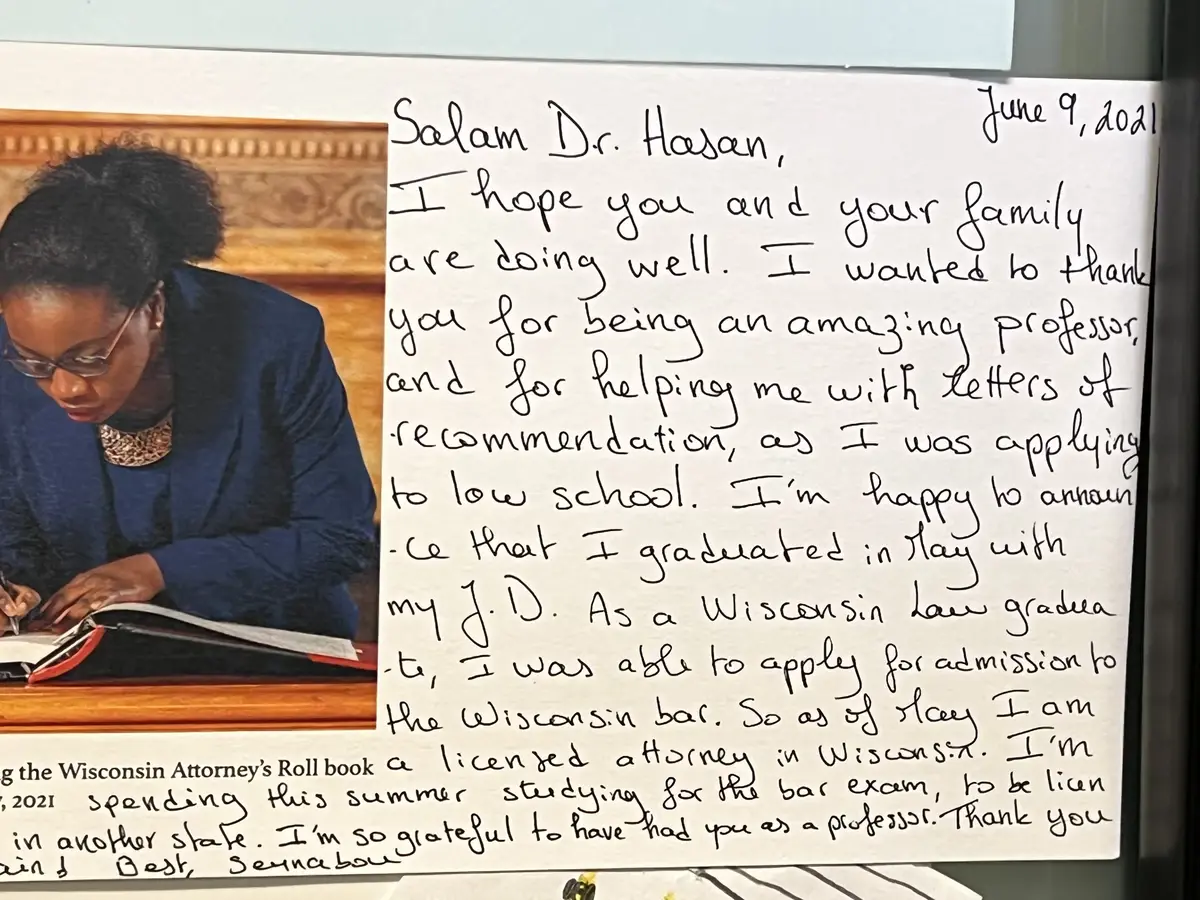 June 9, 2021
Salam Dr. Hasan,
I hope you and your family
are doing well. I wanted to thank
you for being an amazing professor,
and for helping me with letters of
recommendation, as I was applying
to law school. I'm happy to announ
-ce that I graduated in May with
my J.D. As a Wisconsin Law gradua
-te, I was able to apply for admission to
the Wisconsin bar. So as of May I am
a licensed attorney in Wisconsin. I'm
g the Wisconsin Attorney's Roll book
, 2021
spending this summer studying for the bar exam, to be licen
in another state. I'm so grateful to have had you as a professor. Thank you
ain! Best, Seynabou